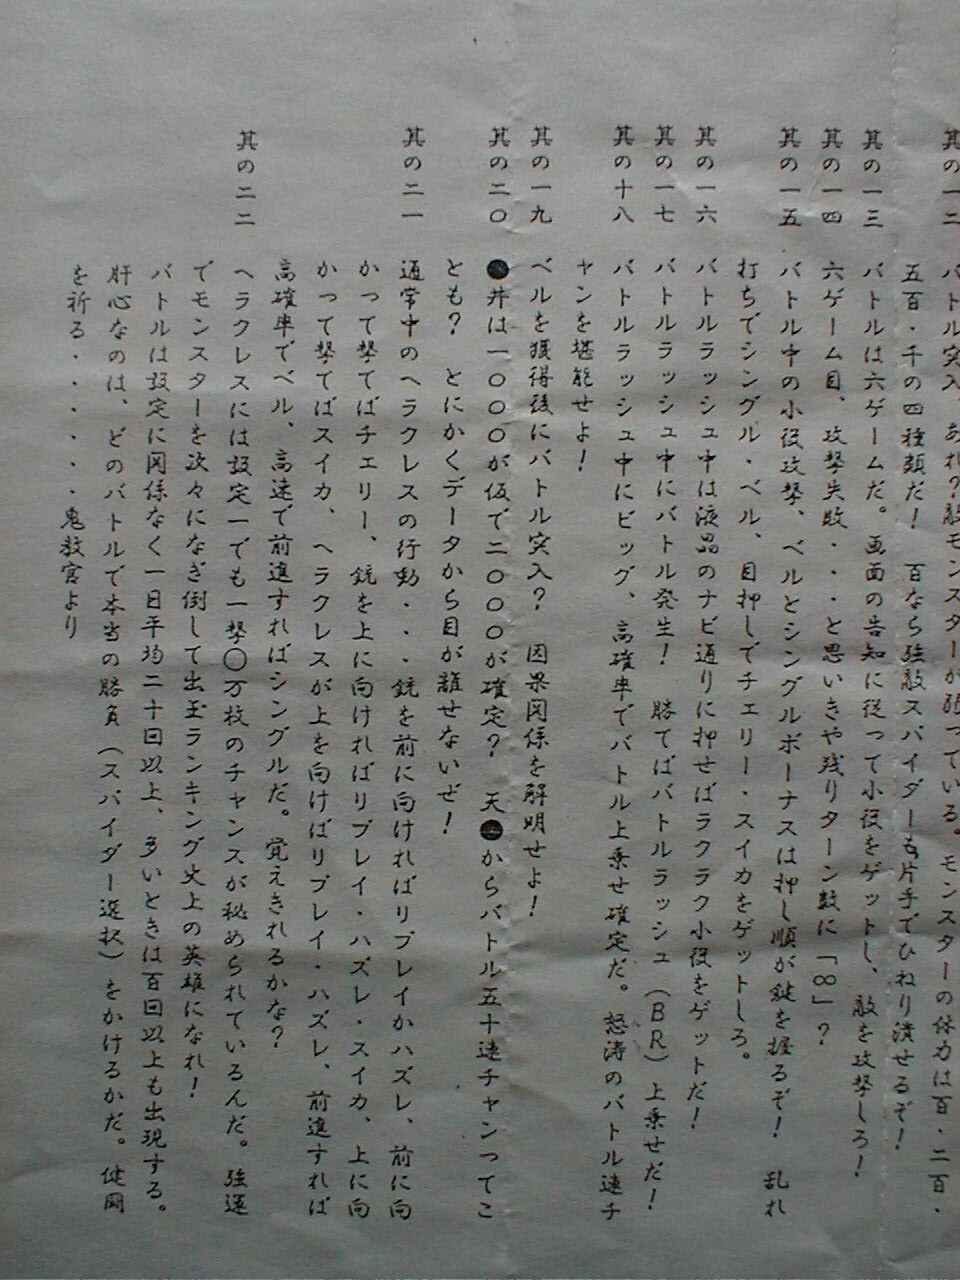 其の一二　バトル突入、あれ？敵モンスターが弱っている。モンスターの体力は百・二百・
五百・千の四種類だ！　百なら強敵スパイダーも片手でひねり潰せるぞ！
其の一三　バトルは六ゲームだ。画面の告知に従って小役をゲットし、敵を攻撃しろ！
其の一四　六ゲーム目、攻撃失敗・・・と思いきや残りターン数に「∞」？
其の一五　バトル中の小役攻撃、ベルとシングルボーナスは押し順が鍵を握るぞ！　乱れ
打ちでシングル・ベル、目押しでチェリー・スイカをゲットしろ。
其の一六　バトルラッシュ中は液晶のナビ通りに押せばラクラク小役をゲットだ！
其の一七　バトルラッシュ中にバトル発生！　勝てばバトルラッシュ（ＢＲ）上乗せだ！
其の十八　バトルラッシュ中にビッグ、高確率でバトル上乗せ確定だ。怒涛のバトル連チ
ャンを堪能せよ！
其の一九　ベルを獲得後にバトル突入？　因果関係を解明せよ！
其の二〇　●井は一〇〇〇が仮で二〇〇〇が確定？　天●からバトル五十連チャンってこ
とも？　とにかくデータから目が離せないぜ！
其の二一　通常中のヘラクレスの行動・・・銃を前に向ければリプレイかハズレ、前に向
かって撃てばチェリー、銃を上に向ければリプレイ・ハズレ・スイカ、上に向
かって撃てばスイカ、ヘラクレスが上を向けばリプレイ・ハズレ、前進すれば
高確率でベル、高速で前進すればシングルだ。覚えきれるかな？
其の二二　ヘラクレスには設定一でも一撃〇万枚のチャンスが秘められているんだ。強運
でモンスターを次々になぎ倒して出玉ランキング史上の英雄になれ！
バトルは設定に関係なく一日平均二十回以上、多いときは百回以上も出現する。
肝心なのは、どのバトルで本当の勝負（スパイダー選択）をかけるかだ。健闘
を祈る・・・・・・鬼教官より